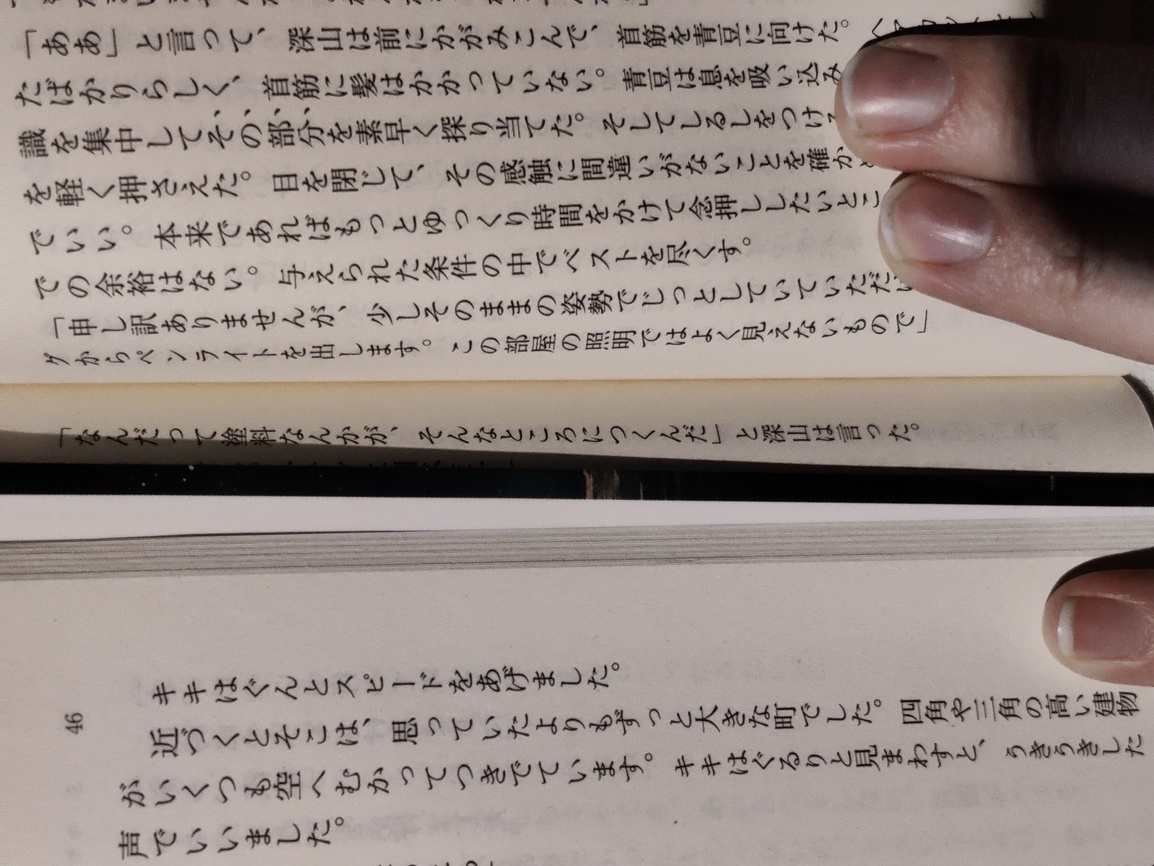 「ああ」と言って、深山は前にかがみこんで、首筋を青豆に向けた。
たばかりらしく、首筋に髪はかかっていない。青豆は息を吸い込み
識を集中してその部分を素早く探り当てた。そしてしるしをつけ
を軽く押さえた。目を閉じて、その感触に間違いがないことを確か
でいい。本来であればもっとゆっくり時間をかけて念押ししたいとこ
での余裕はない。与えられた条件の中でベストを尽くす。
「申し訳ありませんが、少しそのままの姿勢でじっとしていていただ
グからペンライトを出します。この部屋の照明ではよく見えないもので」
「なんだって塗料なんかが、そんなところにつくんだ」と深山は言った。
46
キキはぐんとスピードをあげました。
近づくとそこは、思っていたよりもずっと大きな町でした。四角や三角の高い建物
がいくつも空へむかってつきでています。キキはぐるりと見まわすと、うきうきした
声でいいました。